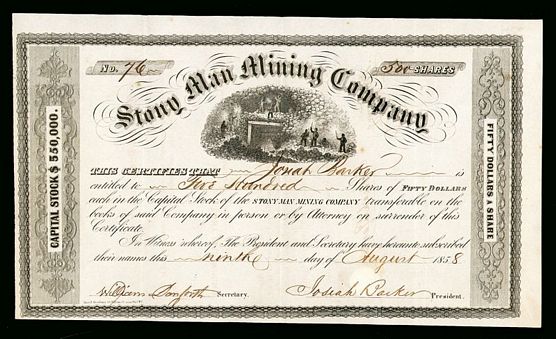 No. 76
500 SHARES
Stony Man Mining Company
CAPITAL STOCK $550,000.
FIFTY DOLLARS A SHARE
THIS CERTIFIES THAT Josiah Parker is
entitled to Five Hundred Shares of FIFTY DOLLARS
each in the Capital Stock of the STONY MAN MINING COMPANY transferable on the
books of said Company in person or by Attorney on surrender of this
Certificate.
In Witness whereof, The President and Secretary have hereunto subscribed
their names this ninth day of August 1858
William Danforth Secretary. Josiah Parker President.